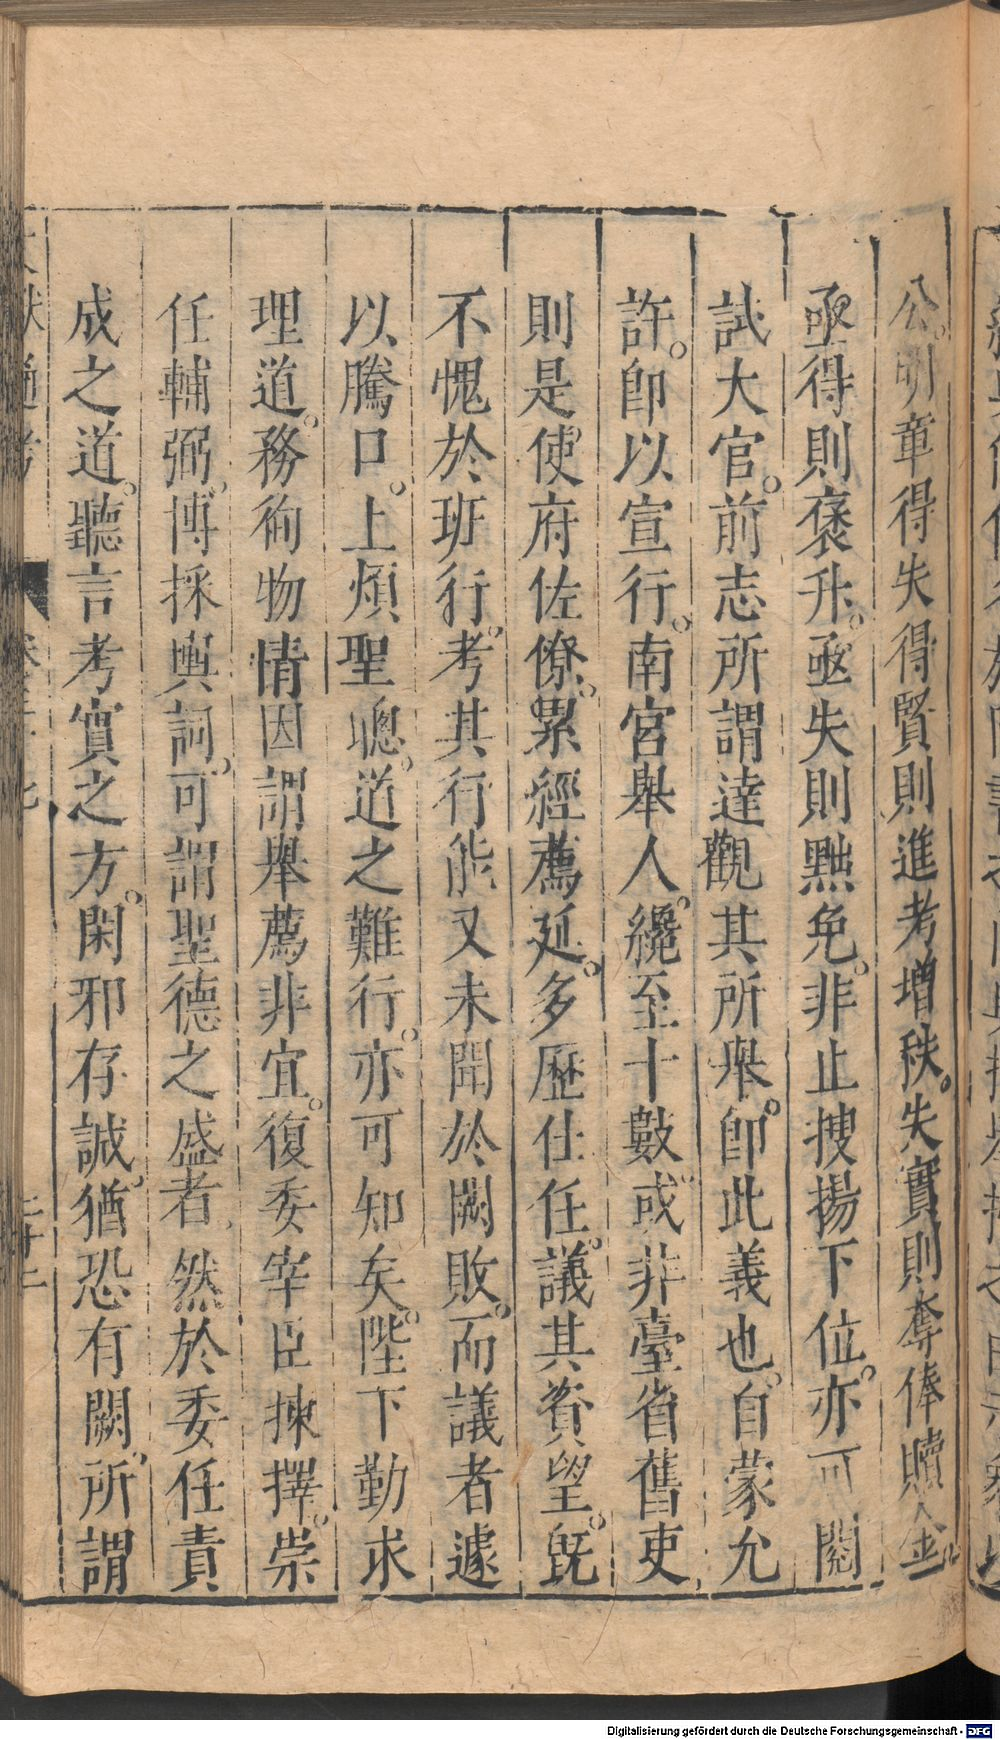 公明章得失得賢則進考增秩失實則奪俸贖金
亟得則褒升亟失則黜免非止搜揚下位亦可閱
試大官前志所謂達觀其所舉即此義也自蒙允
許即以宣行南宮舉人纔至十數或非臺省舊吏
則是使府佐僚累經薦延多歷仕任議其資望既
不愧於班行考其行能又未聞於闕敗而議者遽
以騰口上煩聖聰道之難行亦可知矣陛下勤求
理道務徇物情因謂舉薦非宜復委宰臣揀擇崇
任輔弼博採輿詞可謂聖德之盛者然於委任責
成之道聽言考實之方閑邪存誠猶恐有闕所謂
Digitalisierung gefördert durch die Deutsche Forschungsgemeinschaft - DFG